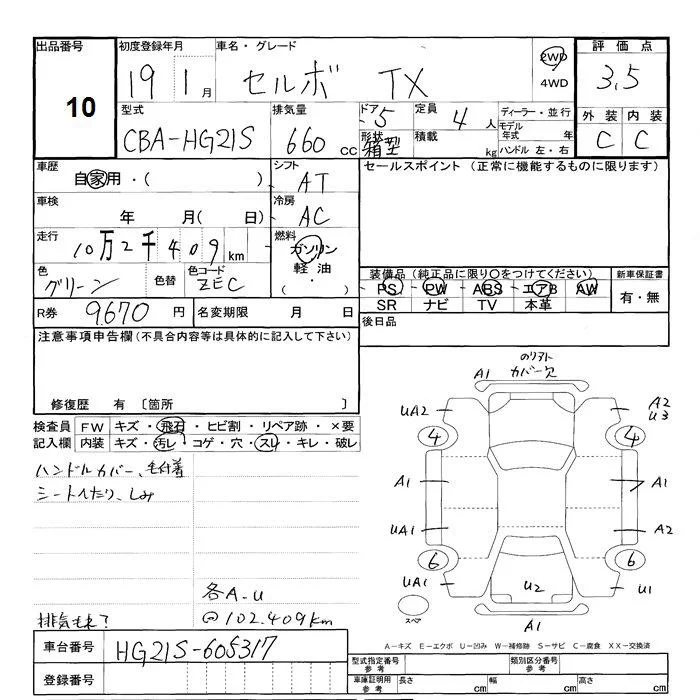 出品番号
10
初度登録年月
19 1月
車名・グレード
セルボ TX
2WD
4WD
評価点
3.5
外装 内装
C C
型式
CBA-HG21S
排気量
660cc
ドア
5
形状
箱型
定員
4人
積載
kg
ディーラー・並行
モデル年式 年
ハンドル 左・右
車歴
自家用・( )
シフト
AT
セールスポイント (正常に機能するものに限ります)
車検
年 月( 日)
冷房
AC
走行
10万2千409km
燃料
ガソリン
軽油
・( )
色
グリーン
色替
色コード
ZEC
装備品 (純正品に限り○をつけてください)
PS PW ABS エアB AW
SR ナビ TV 本革
新車保証書
有・無
R券 9,670円
名変期限 月 日
後日品
注意事項申告欄(不具合内容等は具体的に記入して下さい)
修復歴 有 〔箇所 〕
検査員記入欄
FW キズ・飛石・ヒビ割・リペア跡・×要
内装 キズ・汚レ・コゲ・穴・スレ・キレ・破レ
ハンドルカバー、毛付着
シートへたり、しみ
各A-U
@102.409km
A1
カバー欠
UA2
A2
U3
4
4
A1
A1
UA1
A2
6
6
UA1
U2
U1
スペア
A1
車台番号 HG21S-605317
登録番号
A-キズ E-エクボ U-凹み W-補修跡 S-サビ C-腐食 XX-交換済
型式指定番号 参考
類別区分番号 参考
車庫証明用 参考
長さ cm 幅 cm 高さ cm